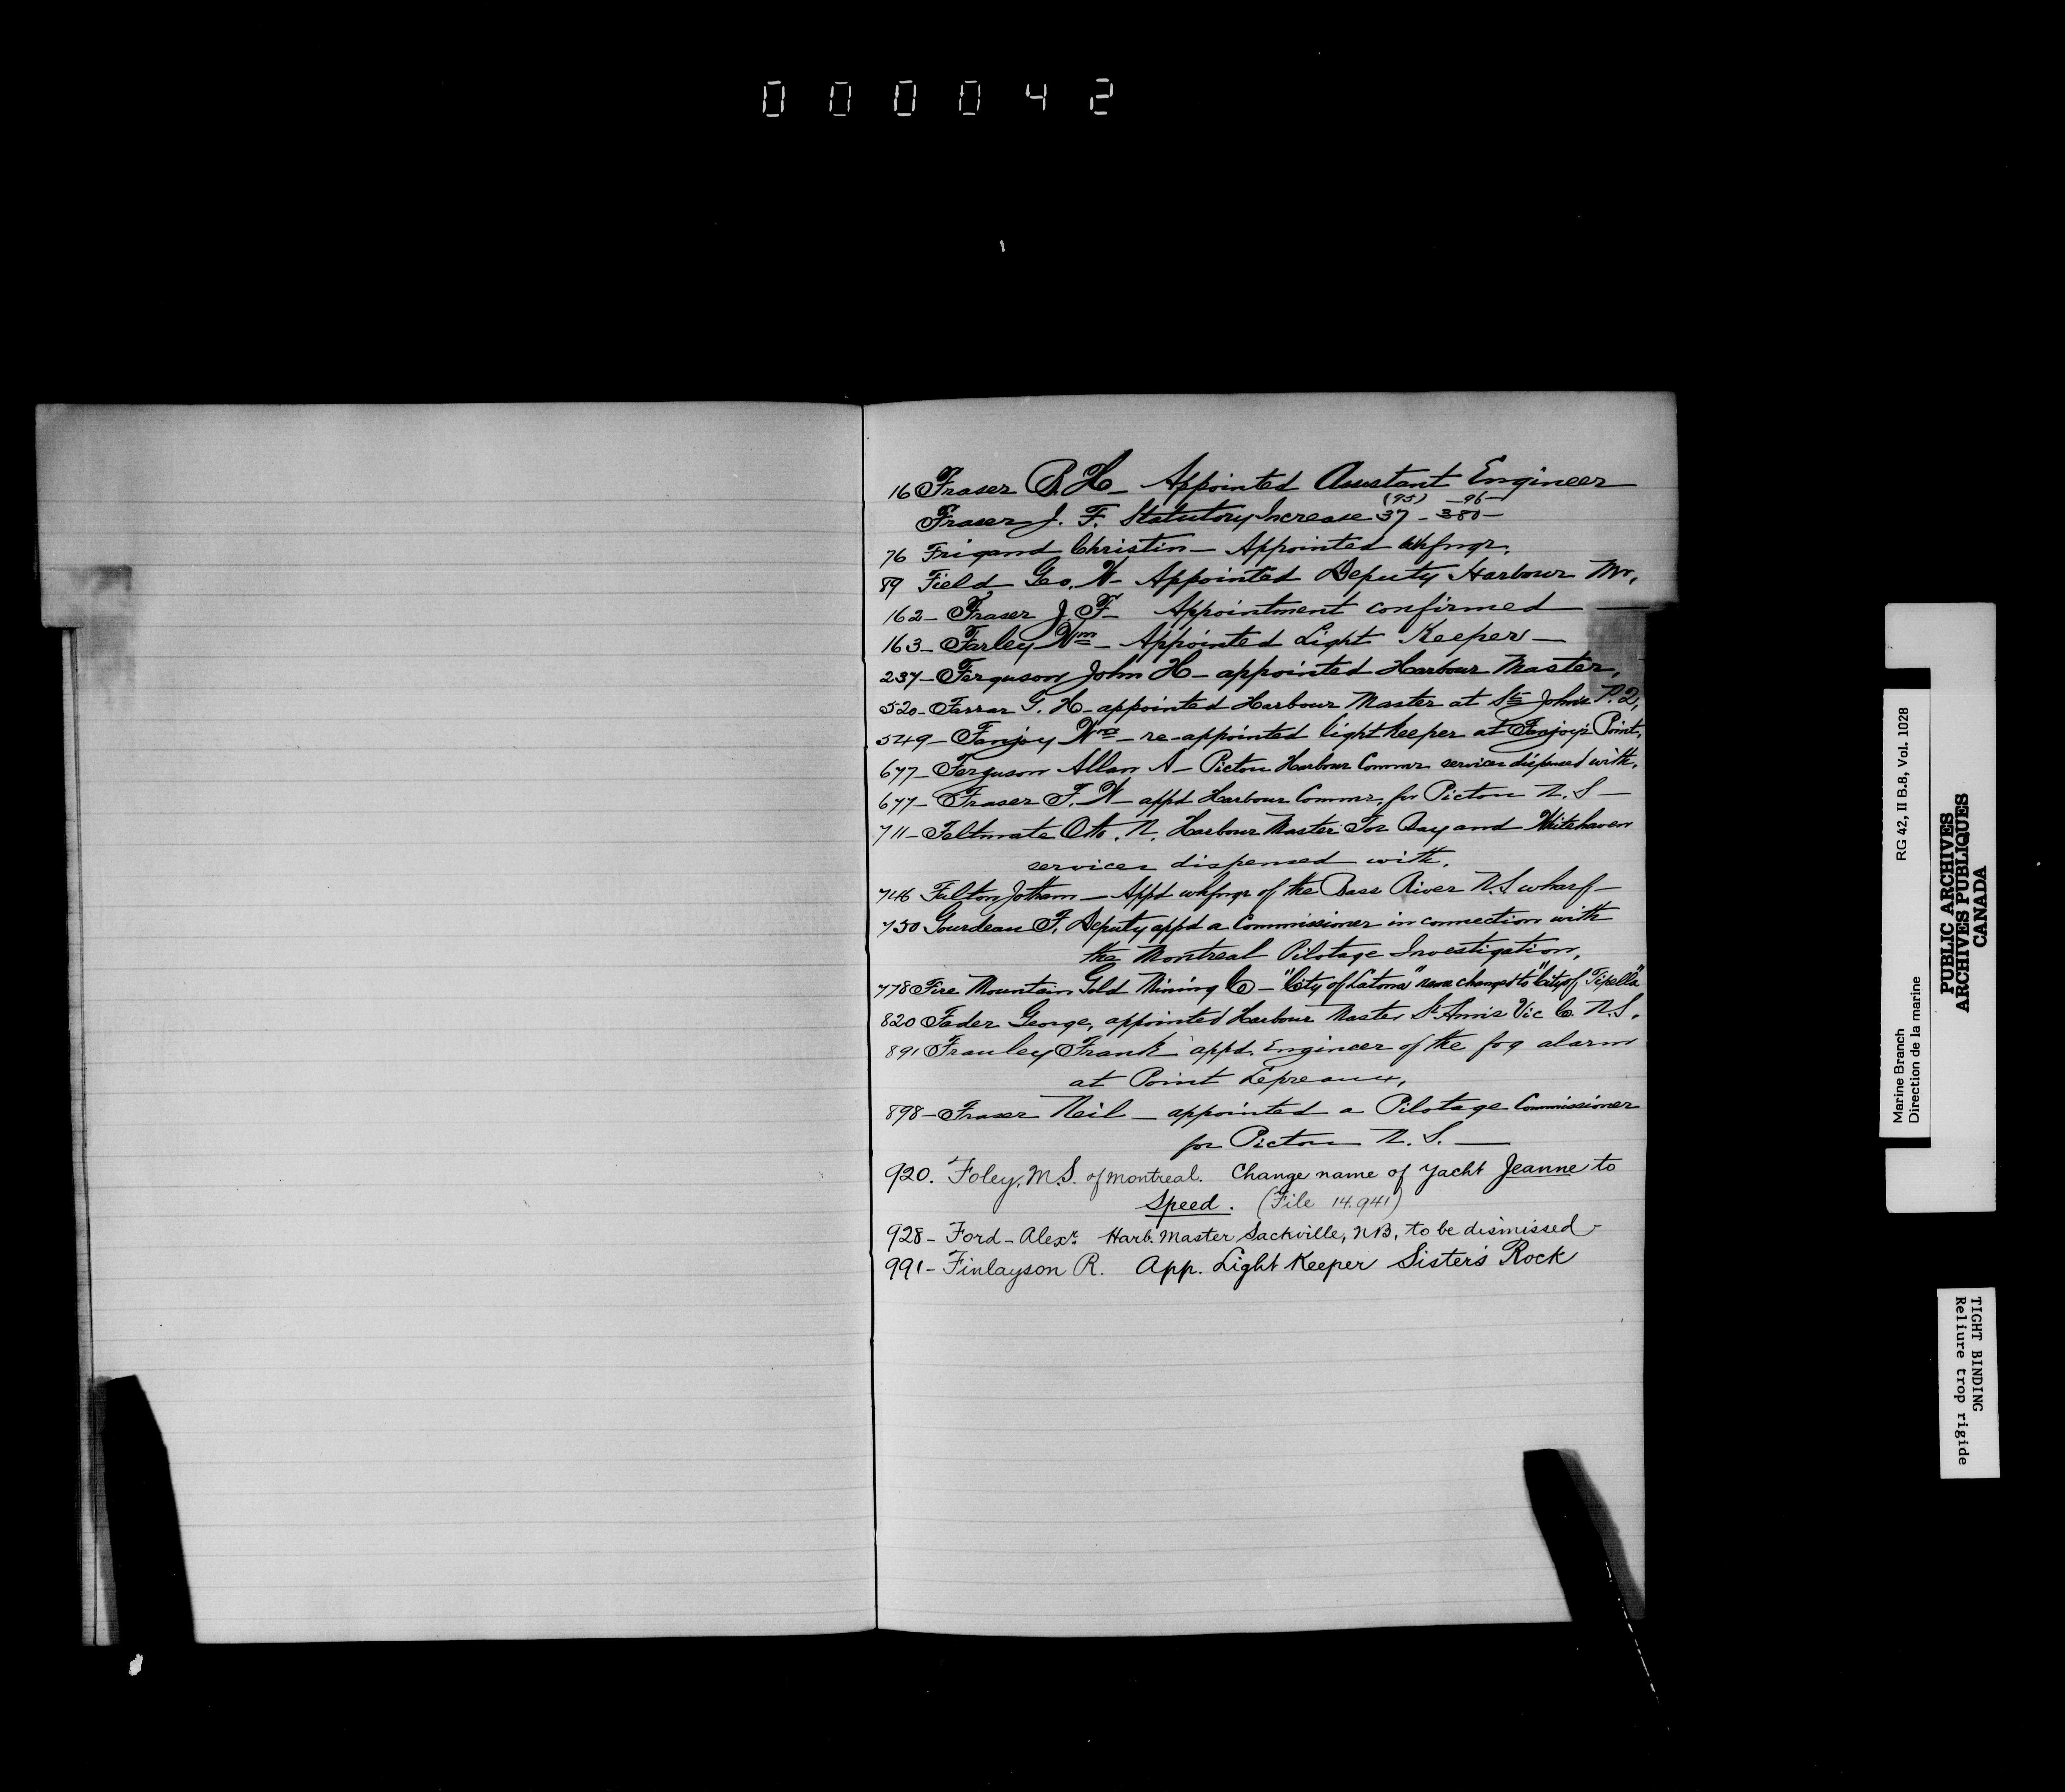 000042
16 Fraser B. H - Appointed Assistant Engineer
Fraser J. F. Statutory Increase 37 (95) - 380 - 96 -
76 Frigand Christin - Appointed Whfngr.
89 Field Geo. W - Appointed Deputy Harbour Mr,
162 - Fraser J. F - Appointment confirmed -
163 - Farley Wm - Appointed Light Keeper -
237 - Ferguson John H - appointed Harbour Master,
520 - Farrar G. H - appointed Harbour Master at St John's P. Q,
549 - Fanjoy Wm - re-appointed light keeper at Fanjoy's Point,
677 - Ferguson Allan A - Pictou Harbour Commr services dispensed with,
677 - Fraser F. W - appd Harbour Commr, for Pictou N. S -
711 - Feltmate Otto. N. Harbour Master Tor Bay and Whitehaven
services dispensed with.
746 Fulton Jotham - Appd whfngr of the Bass River N.S wharf -
750 Gourdeau F. Deputy appd a Commissioner in connection with
the Montreal Pilotage Investigation,
778 Fire Mountain Gold Mining Co - "City of Latona" name changed to "City of Tipella"
820 Fader George, appointed Harbour Master St Ann's Vic Co. N.S.
891 Frauley Frank appd. Engineer of the fog alarm
at Point Lepreaux,
898 - Fraser Neil - appointed a Pilotage Commissioner
for Pictou N. S. -
920. Foley, M.S. of Montreal. Change name of Yacht Jeanne to
Speed. (File 14.941)
928 - Ford - Alexr. Harb. Master Sackville, NB, to be dismissed -
991 - Finlayson R. App. Light Keeper Sister's Rock
RG 42, II B.8, Vol. 1028
Marine Branch
Direction de la marine
PUBLIC ARCHIVES
ARCHIVES PUBLIQUES
CANADA
TIGHT BINDING
Reliure trop rigide